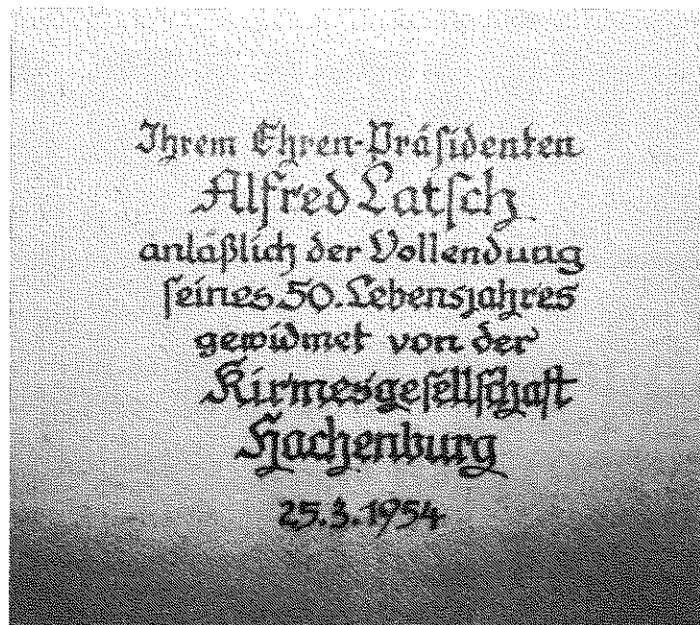 Ihrem Ehren-Präsidenten
Alfred Latsch
anläßlich der Vollendung
seines 50. Lebensjahres
gewidmet von der
Kirmesgesellschaft
Hachenburg
25.3.1954